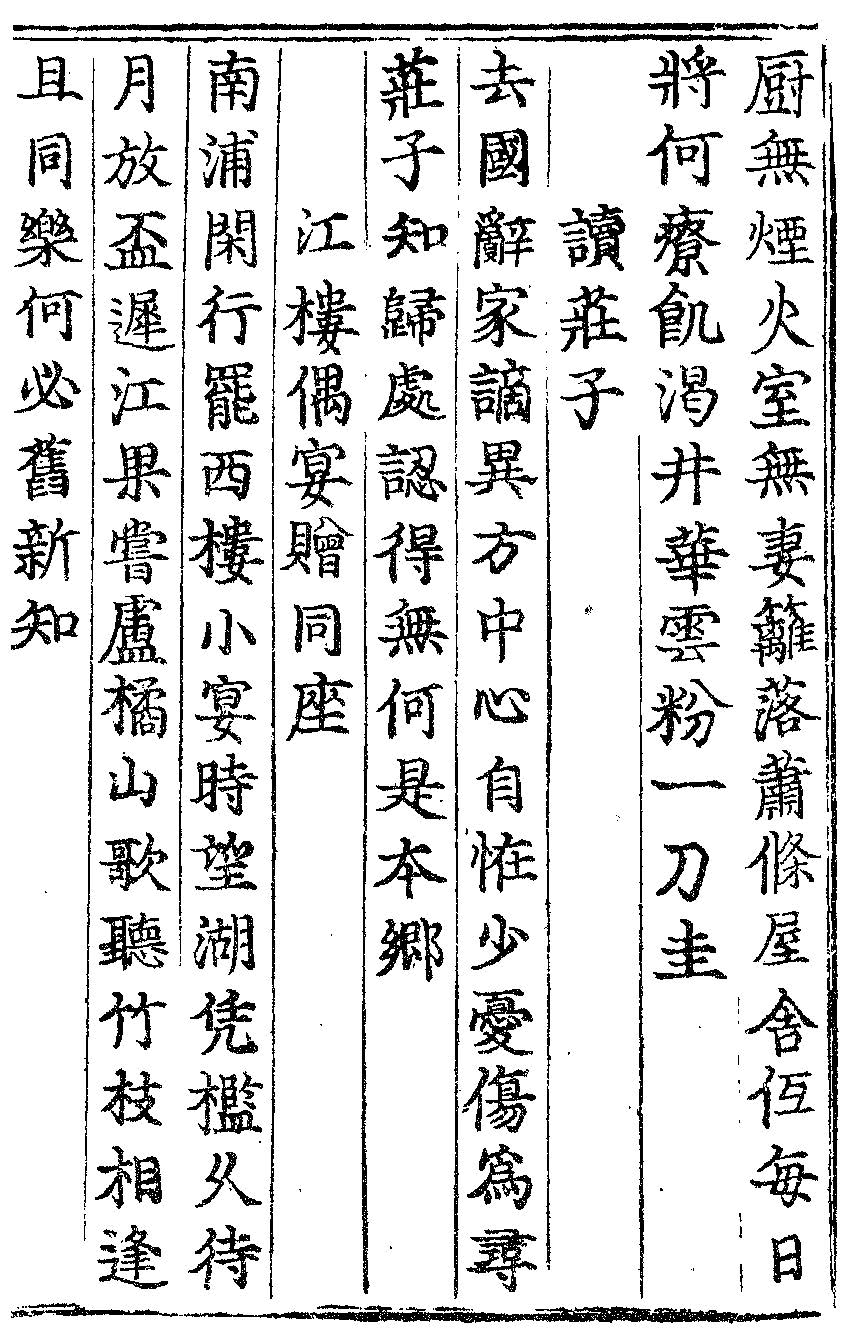 厨無煙火室無妻籬落蕭條屋舍低每日
將何療飢渴井華雲粉一刀圭
讀莊子
去國辭家謫異方中心自恠少憂傷爲尋
莊子知歸處認得無何是本鄉
江樓偶宴贈同座
南浦閑行罷西樓小宴時望湖凭檻久待
月放盃遲江果嘗盧橘山歌聽竹枝相逢
且同樂何必舊新知